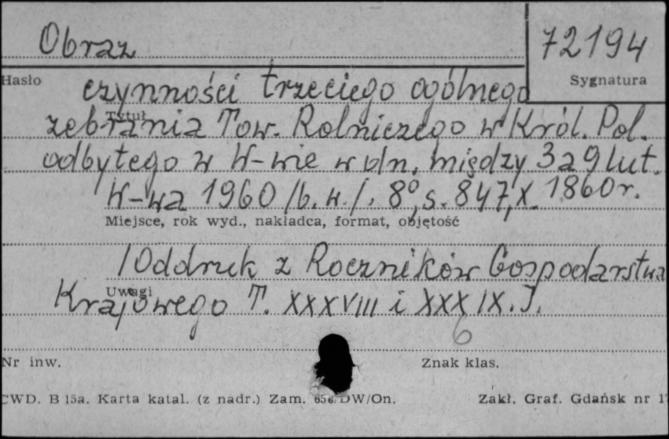 Obraz
72194
Hasło
Sygnatura
czynności trzeciego ogólnego
Tytuł
zebrania Tow. Rolniczego w Król. Pol.
odbytego w W-wie w dn. między 3 a 9 lut.
W-wa 1960 /b.w./. 8°, s. 847, X. 1860 r.
Miejsce, rok wyd., nakładca, format, objętość
/Oddruk z Roczników Gospodarstwa
Uwagi
Krajowego T. XXXVIII i XXXIX.J.
6
Nr inw.
Znak klas.
CWD. B 15a. Karta katal. (z nadr.) Zam. 656. DW/On.
Zakł. Graf. Gdańsk nr 1